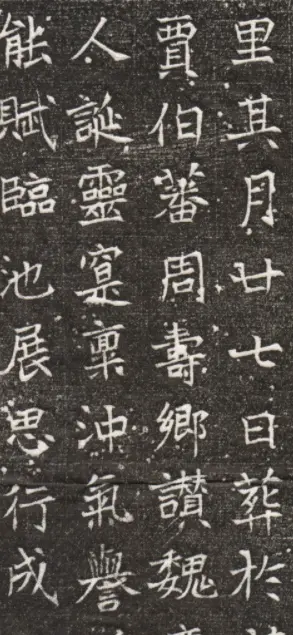 里其月廿七日葬於
賈伯蕃周壽鄉讃魏
人誕靈寔稟沖氣譽
能賦臨池展思行成